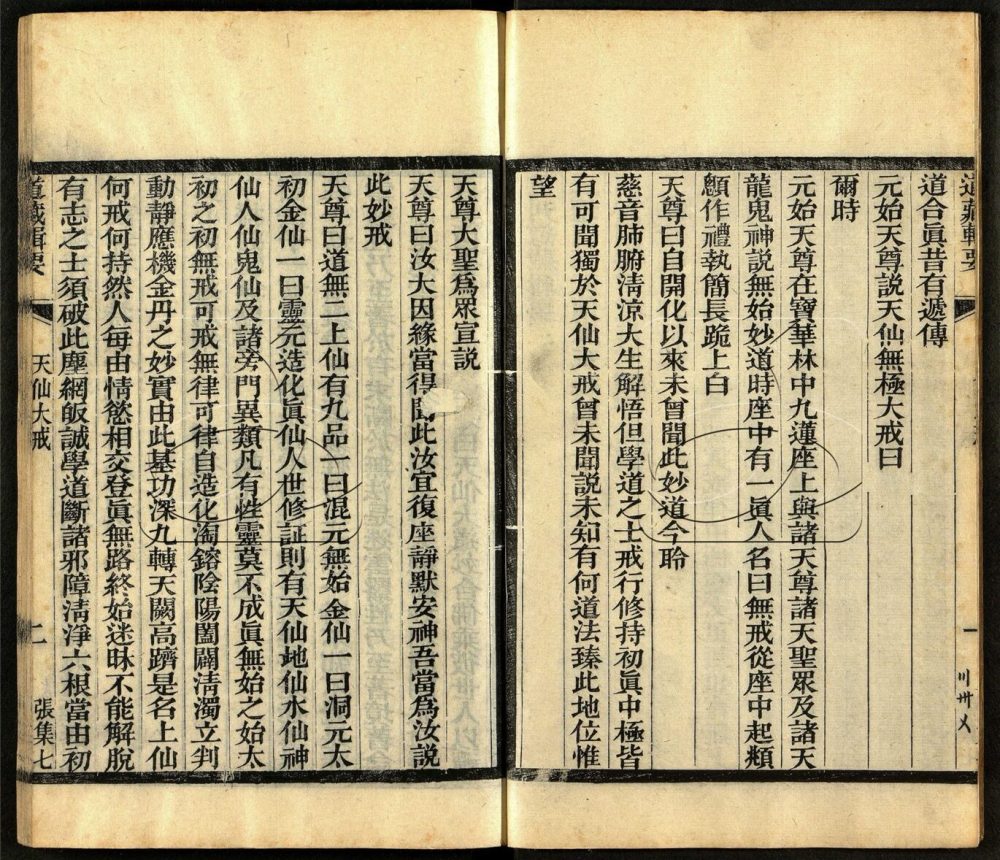 道藏輯要
一
道合眞昔有遞傳
元始天尊説天仙無極大戒曰
爾時
元始天尊在寶華林中九蓮座上與諸天尊諸天聖眾及諸天
龍鬼神説無始妙道時座中有一眞人名曰無戒從座中起顙
顖作禮執簡長跪上白
天尊曰自開化以來未曾聞此妙道今聆
慈音肺腑清涼大生解悟但學道之士戒行修持初眞中極皆
有可聞獨於天仙大戒曾未聞説未知有何道法臻此地位惟
望
天尊大聖爲眾宣説
天尊曰汝大因緣當得聞此汝宜復座靜默安神吾當爲汝説
此妙戒
天尊曰道無二上仙有九品一曰混元無始金仙一曰洞元太
初金仙一曰靈元造化眞仙人世修証則有天仙地仙水仙神
仙人仙鬼仙及諸旁門異類凡有性靈莫不成眞無始之始太
初之初無戒可戒無律可律自造化淘鎔陰陽闔闢清濁立判
動靜應機金丹之妙實由此基功深九轉天闕高躋是名上仙
何戒何持然人每由情慾相交登眞無路終始迷昧不能解脫
有志之士須破此塵網皈誠學道斷諸邪障清淨六根當由初
道藏輯要 天仙大戒 二 張集七